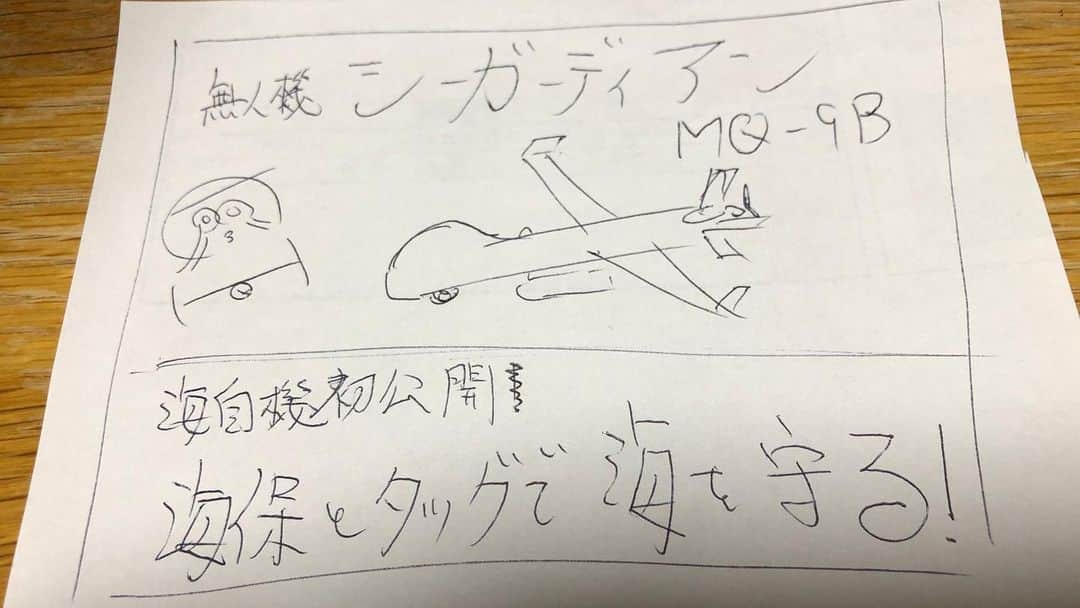 無人機 シーガーディアン
MQ-9B
海自機初公開
海保とタッグで海を守る!